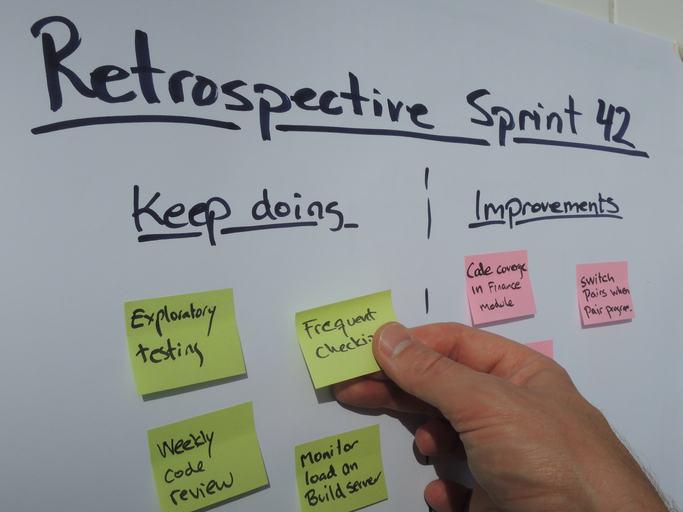 Retrospective Sprint 42
Keep doing
Improvements
Exploratory
testing
Frequent
Weekly
code
review
Monitor
load on
Build server
Code coverage
in Finance
module
Switch
Pairs when
Pair program.